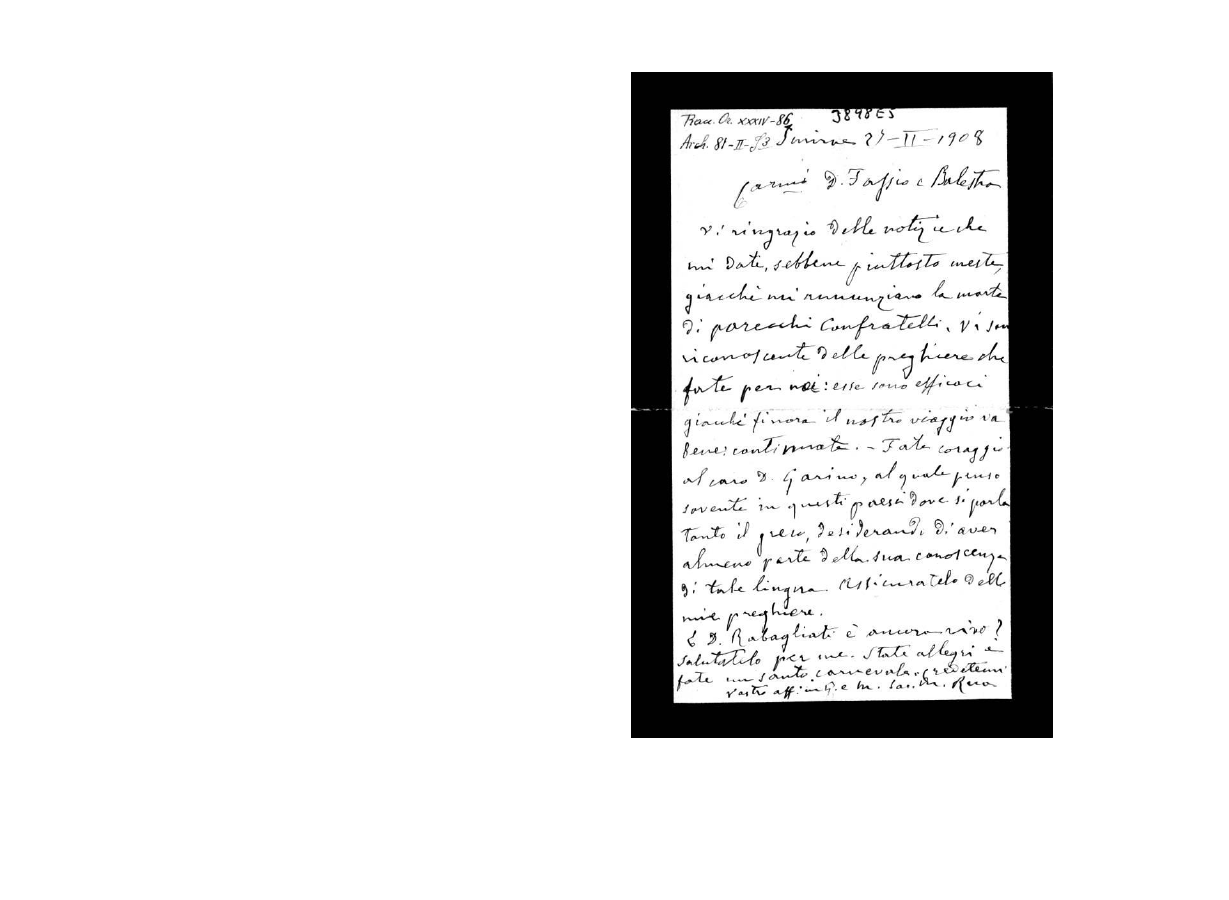 Trasc. Or. XXXIV-86 3898E5
Arch. 81-II-93 Smirne 27-II-1908
Carmi D. Fassio e Balestra
Vi ringrazio delle notizie che
mi date, sebbene piuttosto meste,
giacchè mi rinunziano la morte
di parecchi Confratelli. Vi son
riconoscente delle preghiere che
fate per noi: esse sono efficaci
giacchè finora il nostro viaggio va
bene: continuate. - Fate coraggio
al caro D. Garino, al quale penso
sovente in questi paesi dove si parla
tanto il greco, desiderando di aver
almeno parte della sua conoscenza
di tale lingua. Assicuratelo delle
mie preghiere.
E D. Rabagliati è ancora vivo?
Salutatelo per me. State allegri e
fate un santo carnevale. Credetemi
Vostro aff. in G. e M. Sac. M. Rua